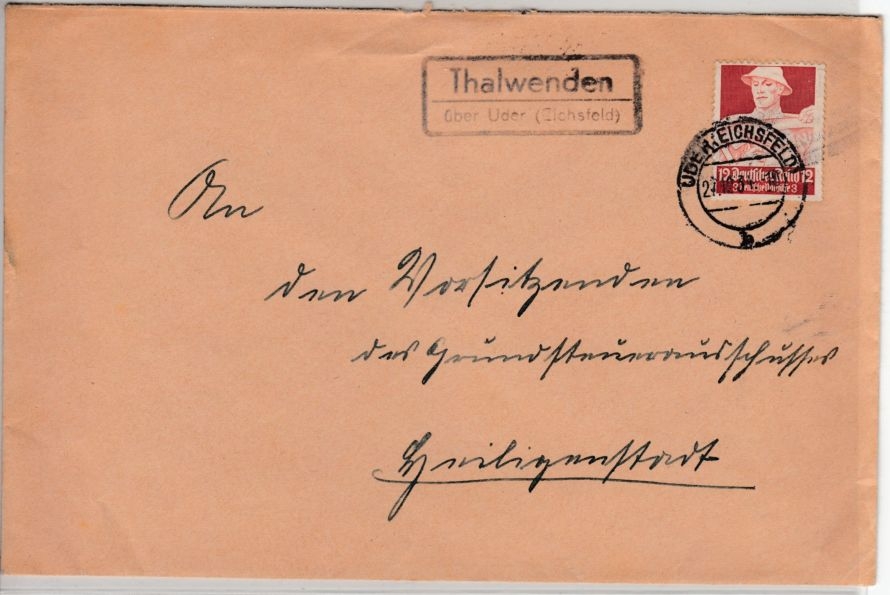 Thalwenden
über Uder (Eichsfeld)
UDER (EICHSFELD)
b
12 Deutsches Reich 12
An
den Vorsitzenden
des Grundsteuerausschusses
Heiligenstadt